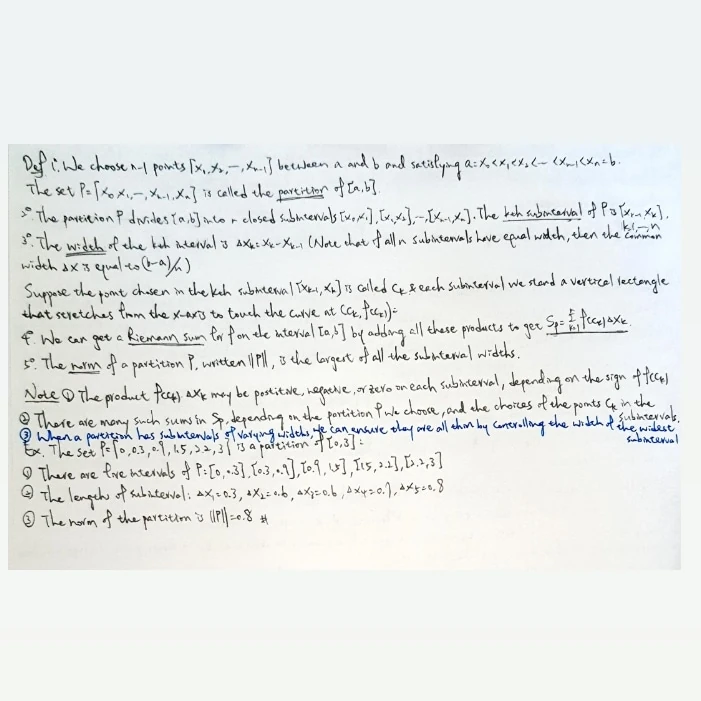 Def 1°. We choose n-1 points {x₁,x₂,—,xₙ₋₁} between a and b and satisfying a=x₀<x₁<x₂<—<xₙ₋₁<xₙ=b.
The set P={x₀,x₁,—,xₙ₋₁,xₙ} is called the partition of [a,b].
2° The partition P divides [a,b] into n closed subintervals [x₀,x₁],[x₁,x₂],—,[xₙ₋₁,xₙ]. The kth subinterval of P is [xₖ₋₁,xₖ],
k=1,—,n
3°. The width of the kth interval is Δxₖ=xₖ-xₖ₋₁ (Note that if all n subintervals have equal width, then the common
width Δx is equal to (b-a)/n)
Suppose the point chosen in the kth subinterval [xₖ₋₁,xₖ] is called cₖ & each subinterval we stand a vertical rectangle
that stretches from the x-axis to touch the curve at (cₖ,f(cₖ)):
4°. We can get a Riemann sum for f on the interval [a,b] by adding all these products to get Sₚ=Σₖ₌₁ⁿ f(cₖ)Δxₖ.
5°. The norm of a partition P, written ||P||, is the largest of all the subinterval widths.
Note ① The product f(cₖ)Δxₖ may be postitive, negative, or zero on each subinterval, depending on the sign of f(cₖ)
② There are many such sums in Sₚ, depending on the partition P we choose, and the choices of the points cₖ in the
subintervals.
③ When a partition has subintervals of varying widths, we can ensure they are all thin by controlling the width of the widest
subinterval
Ex. The set P={0,0.3,0.9,1.5,2.2,3} is a partition of [0,3]:
① There are five intervals of P:[0,0.3],[0.3,0.9],[0.9,1.5],[1.5,2.2],[2.2,3]
② The length of subinterval: Δx₁=0.3, Δx₂=0.6, Δx₃=0.6, Δx₄=0.7, Δx₅=0.8
③ The norm of the partition is ||P||=0.8 #